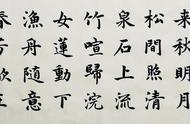 来秋明月
松間照清
泉石上流
竹喧歸浣
女蓮動下
漁舟隨意
春芳歇王